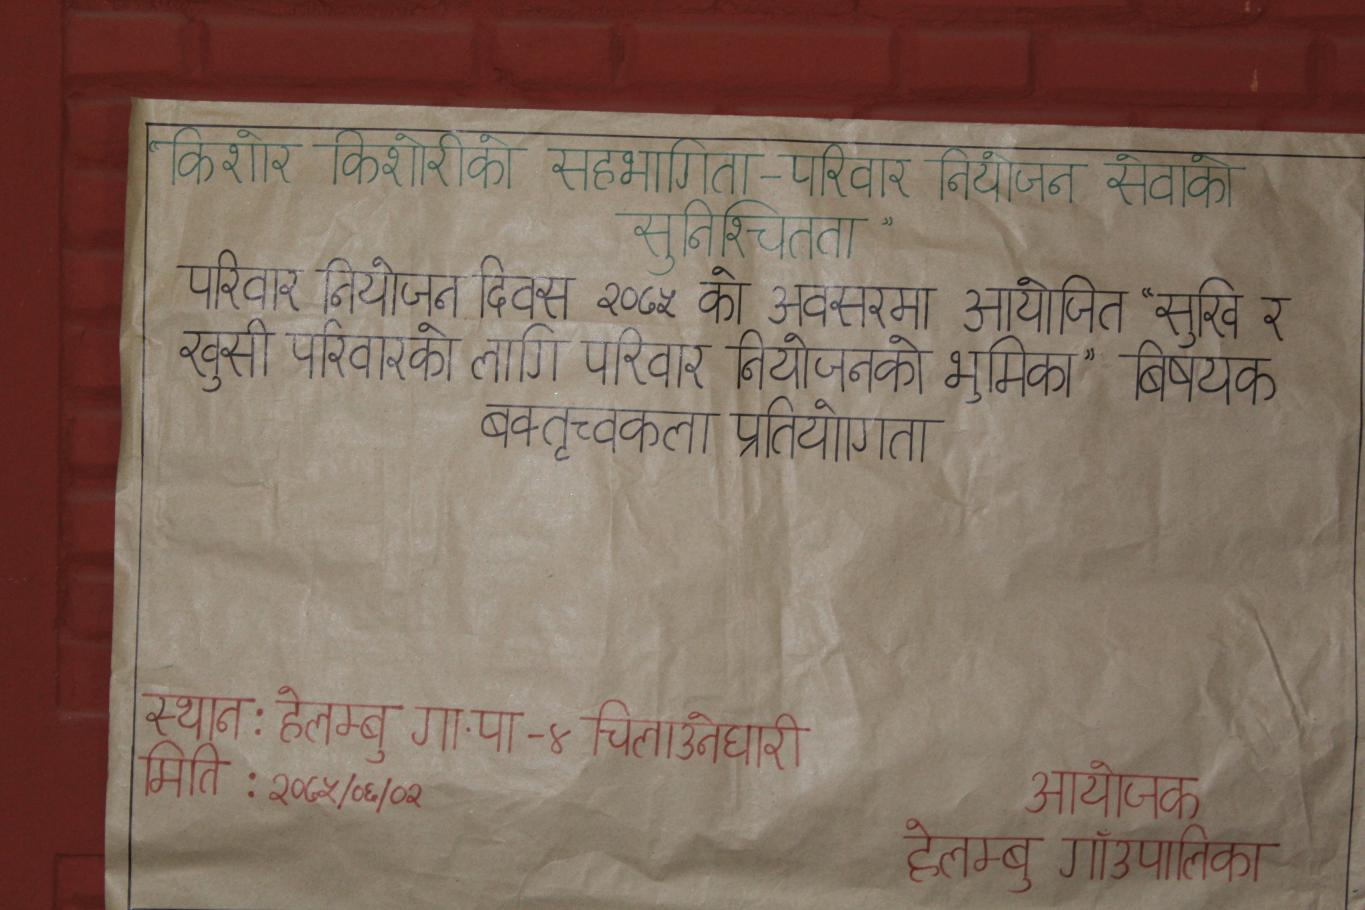 "किशोर किशोरीको सहभागिता-परिवार नियोजन सेवाको
सुनिश्चितता"
परिवार नियोजन दिवस २०७५ को अवसरमा आयोजित "सुखि र
खुसी परिवारको लागि परिवार नियोजनको भुमिका" बिषयक
बक्तृत्वकला प्रतियोगिता
स्थान: हेलम्बु गा.पा -४ चिलाउनेघारी
मिति : २०७५/०६/०२
आयोजक
हेलम्बु गाँउपालिका